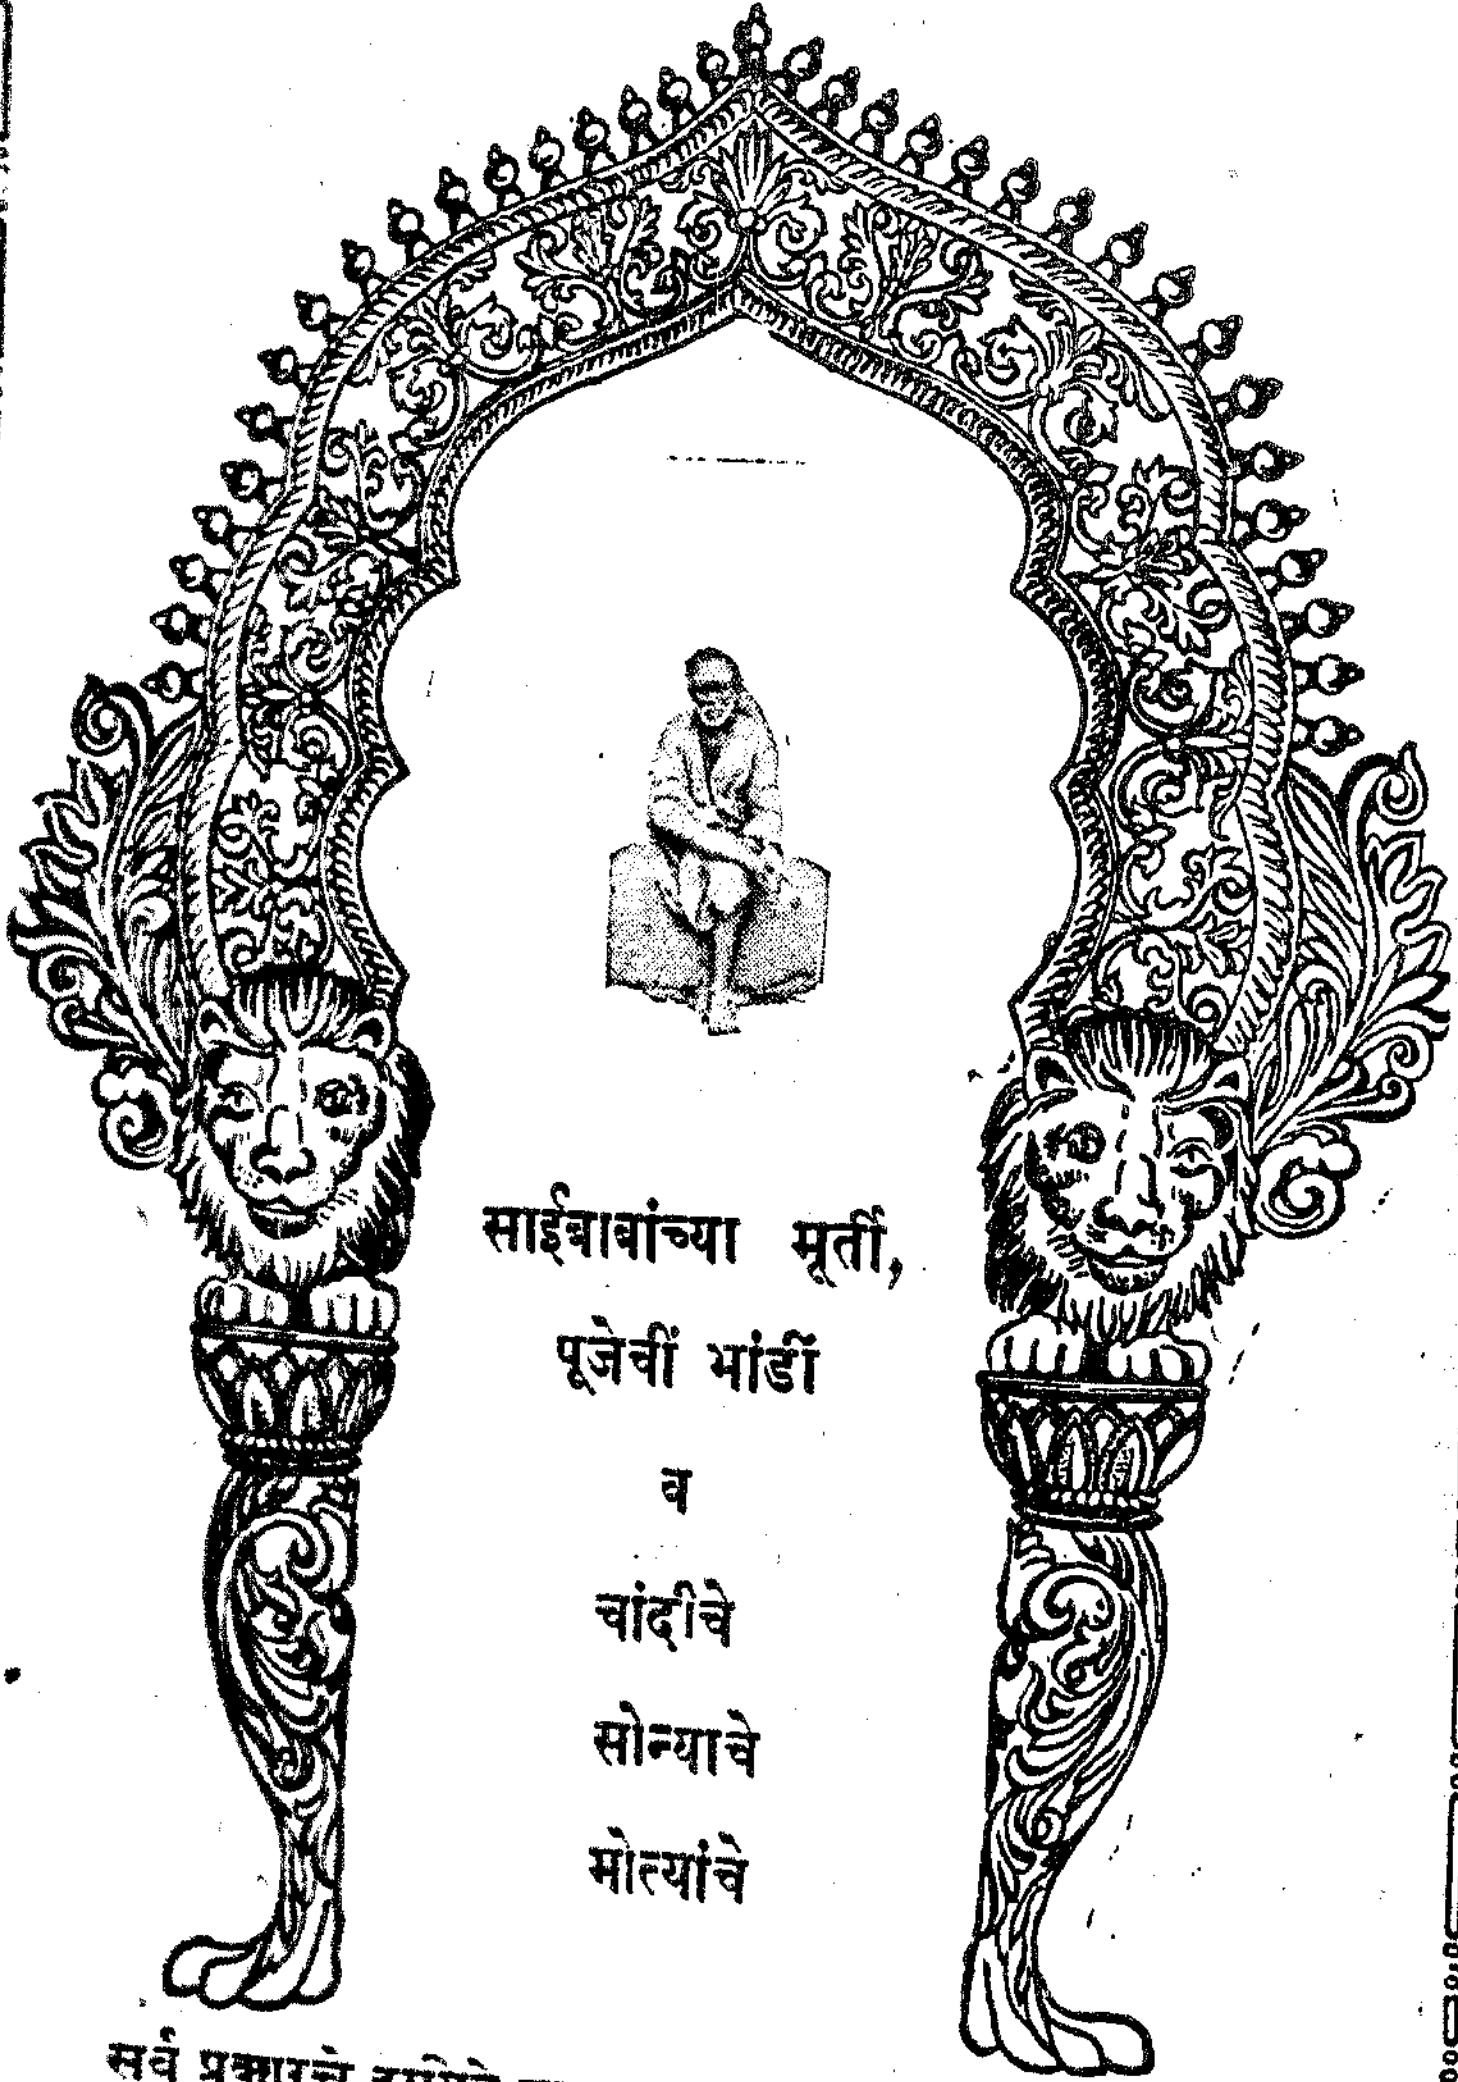 साईबाबांच्या मूर्ती,
पूजेचीं भांडीं
व
चांदीचे
सोन्याचे
मोत्यांचे
सर्व प्रकारचे